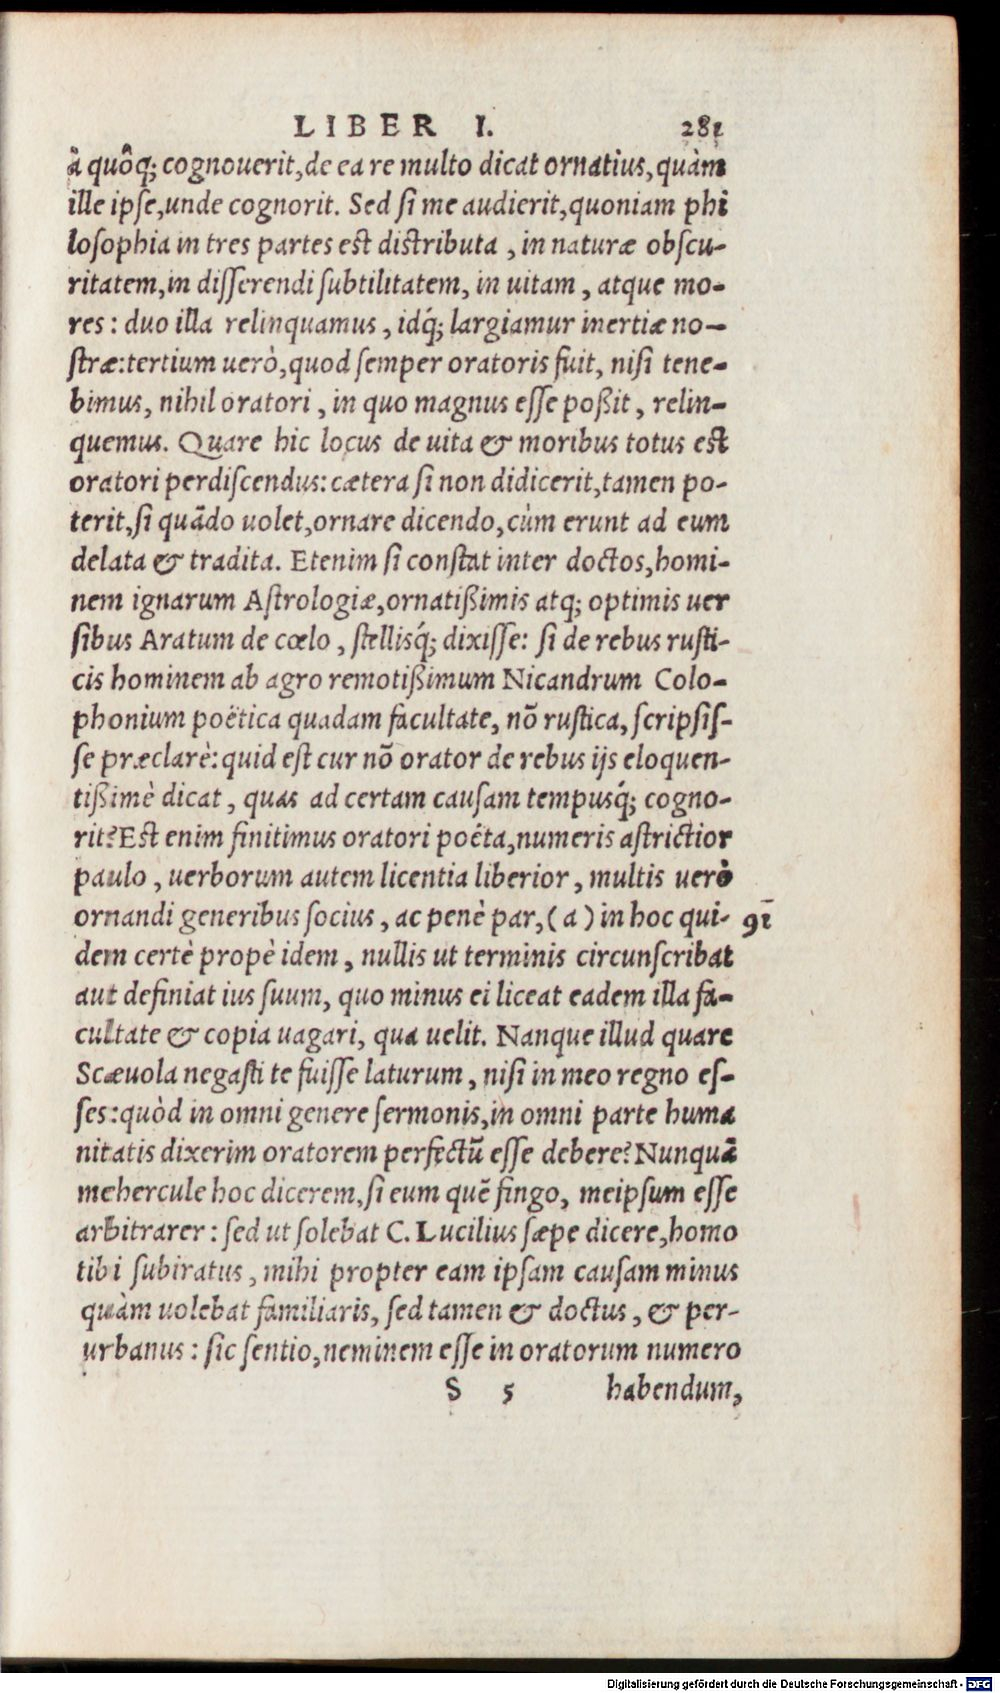 LIBER I. 281
à quôq; cognouerit, de ea re multo dicat ornatius, quàm
ille ipſe, unde cognorit. Sed ſi me audierit, quoniam phi
loſophia in tres partes eſt diſtributa, in naturæ obſcu-
ritatem, in diſſerendi ſubtilitatem, in uitam, atque mo-
res: duo illa relinquamus, idq́; largiamur inertiæ no-
ſtræ: tertium uerò, quod ſemper oratoris fuit, niſi tene-
bimus, nihil oratori, in quo magnus eſſe poßit, relin-
quemus. Quare hic locus de uita & moribus totus eſt
oratori perdiſcendus: cætera ſi non didicerit, tamen po-
terit, ſi quādo uolet, ornare dicendo, cùm erunt ad eum
delata & tradita. Etenim ſi conſtat inter doctos, homi-
nem ignarum Aſtrologiæ, ornatißimis atq; optimis uer
ſibus Aratum de cœlo, ſtellisq́; dixiſſe: ſi de rebus ruſti-
cis hominem ab agro remotißimum Nicandrum Colo-
phonium poëtica quadam facultate, nō ruſtica, ſcripſiſ-
ſe præclarè: quid eſt cur nō orator de rebus ijs eloquen-
tißimè dicat, quas ad certam cauſam tempusq́; cogno-
rit? Eſt enim finitimus oratori poëta, numeris aſtrictior
paulo, uerborum autem licentia liberior, multis uerò
ornandi generibus ſocius, ac penè par, (a) in hoc qui- 91
dem certè propè idem, nullis ut terminis circunſcribat
aut definiat ius ſuum, quo minus ei liceat eadem illa fa-
cultate & copia uagari, qua uelit. Nanque illud quare
Scæuola negaſti te fuiſſe laturum, niſi in meo regno eſ-
ſes: quòd in omni genere ſermonis, in omni parte huma
nitatis dixerim oratorem perfectū eſſe debere? Nunquā
mehercule hoc dicerem, ſi eum quē fingo, meipſum eſſe
arbitrarer: ſed ut ſolebat C. Lucilius ſæpe dicere, homo
tibi ſubiratus, mihi propter eam ipſam cauſam minus
quàm uolebat familiaris, ſed tamen & doctus, & per-
urbanus: ſic ſentio, neminem eſſe in oratorum numero
S 5 habendum,
Digitalisierung gefördert durch die Deutsche Forschungsgemeinschaft - DFG